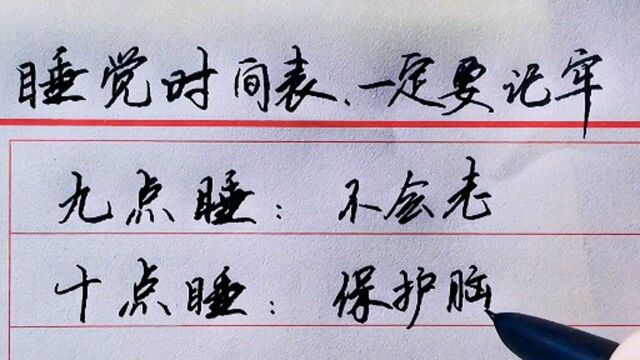 睡觉时间表、一定要记牢
九点睡：不会老
十点睡：保护脑